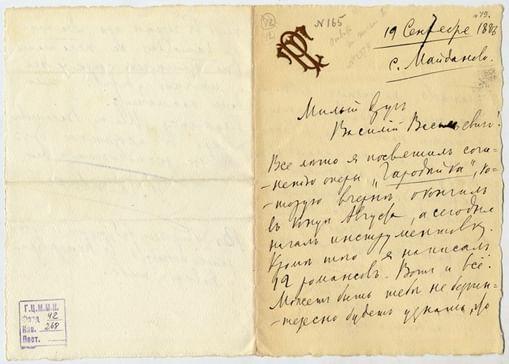 №165
19 Сентября 1886
с. Майданово.
Милый другъ
Василій Васильевичъ!
Все лето я посвятилъ сочи-
ненію оперы „Чародѣйка", ко-
торую вчернѣ окончилъ
въ концѣ Августа, а сегодня
началъ инструментовку.
Кромѣ того я написалъ
12 романсовъ. Вотъ и всё.
Можетъ быть тебѣ не безъин-
тересно будетъ узнать, что
Г.Ц.М.М.К.
Фонд 42
Инв. 268
Пост.